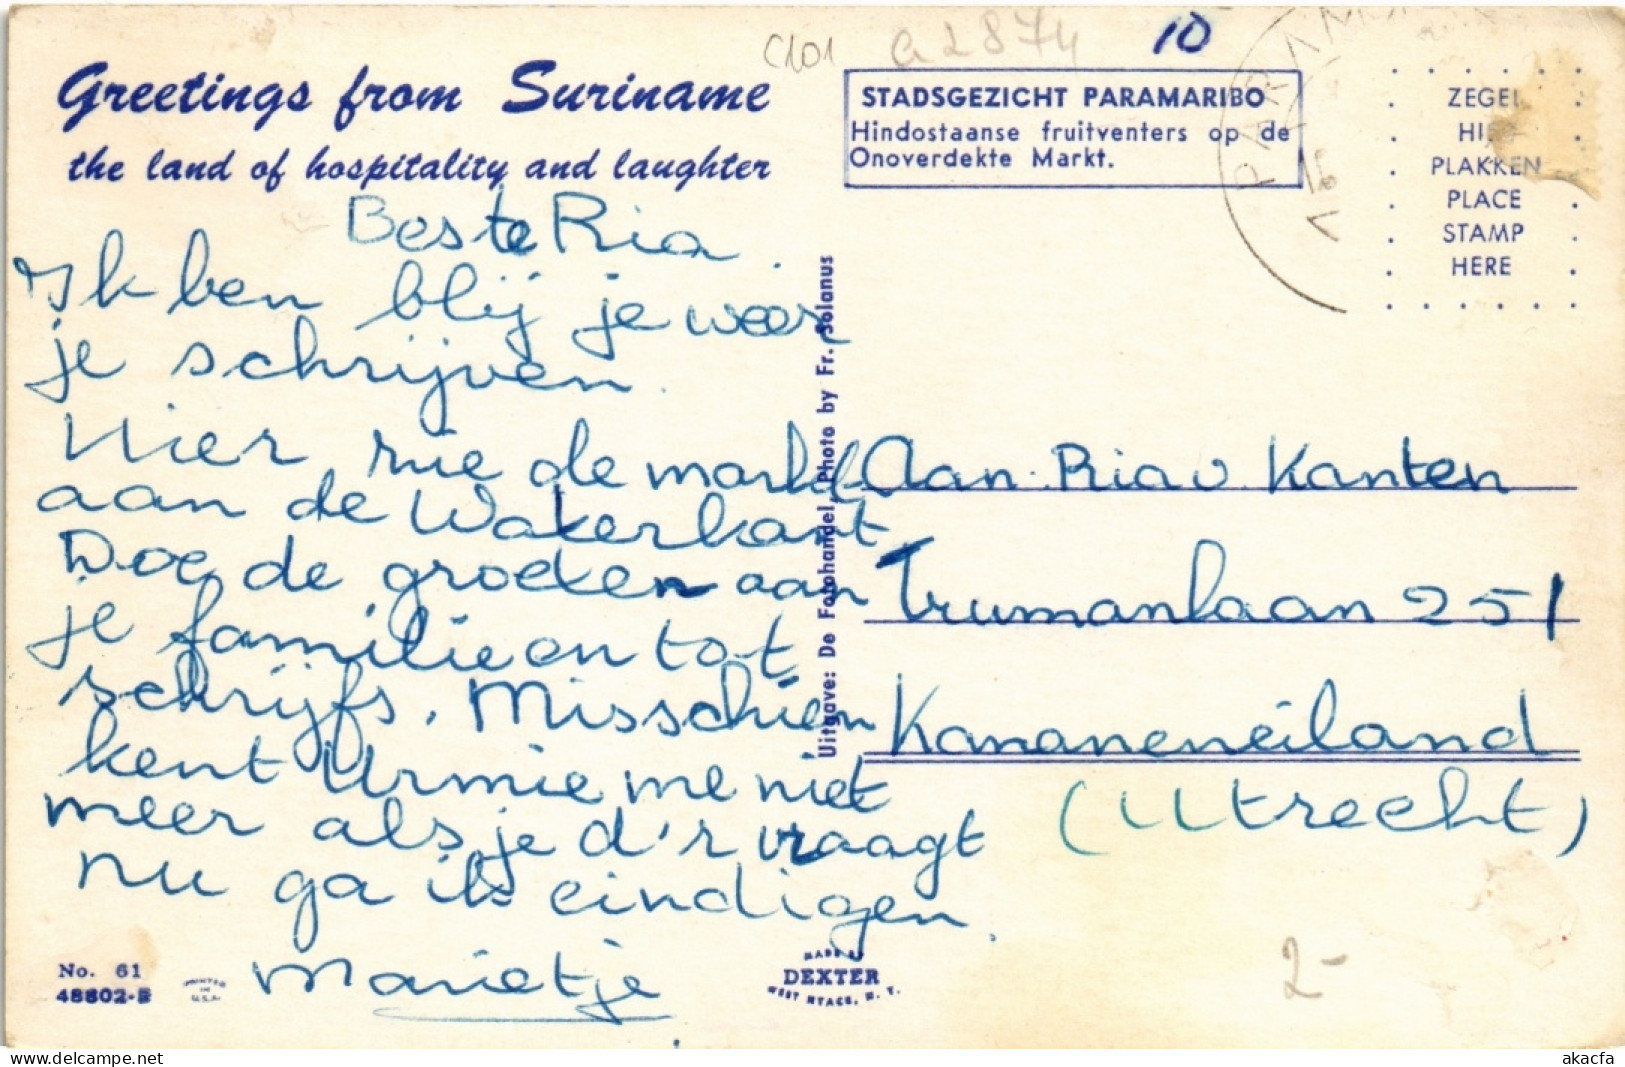 C101 a2874 10
Greetings from Suriname
the land of hospitality and laughter
STADSGEZICHT PARAMARIBO
Hindostaanse fruitventers op de
Onoverdekte Markt.
ZEGEL
HIER
PLAKKEN
PLACE
STAMP
HERE
Beste Ria
Ik ben blij je weer
je schrijven.
Hier zie de markt
aan de Waterkant
Doe de groeten aan
je familie en tot
schrijfs. Misschien
kent Urmie me niet
meer als je d'r vraagt
nu ga ik eindigen.
Marietje
Uitgave: De Fotohandel, Photo by Fr. Solanus
Aan Ria v. Kanten
Trumanlaan 251
Kananeneiland
(Utrecht)
No. 61
48802-B
PRINTED
IN
U.S.A.
MADE BY
DEXTER
WEST NYACK, N. Y.
2-
akacfa